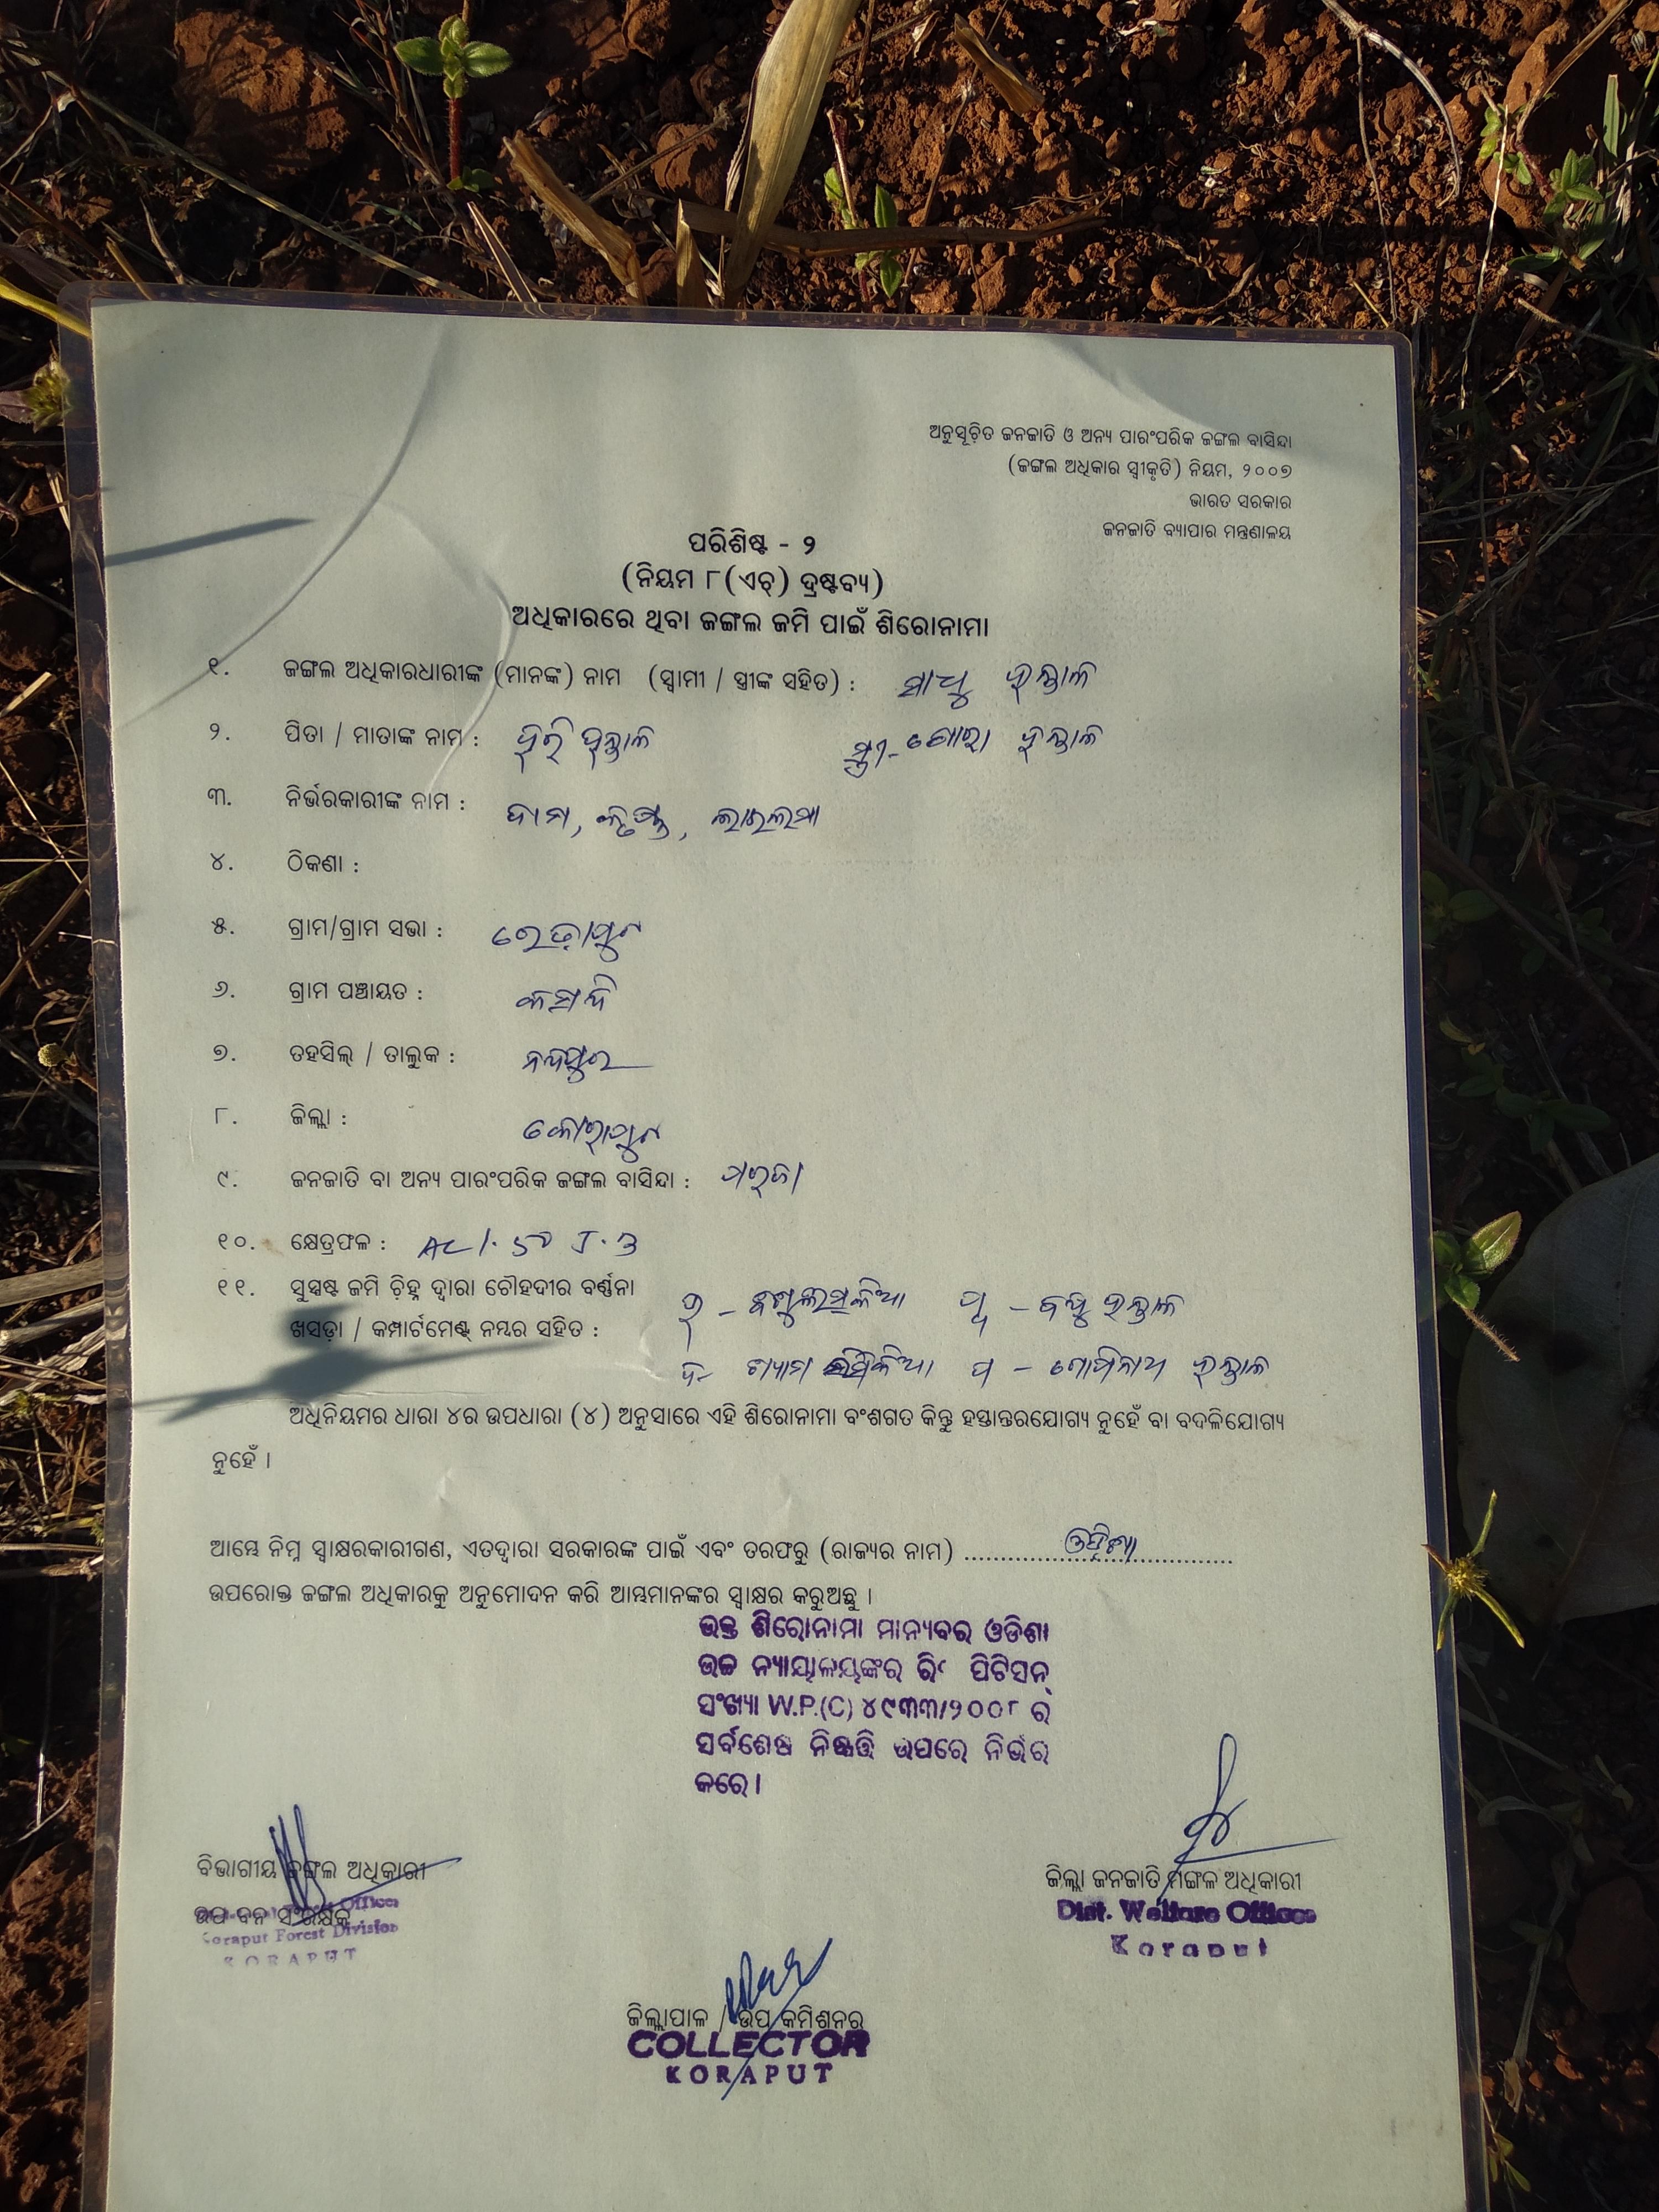 ଅନୁସୂଚିତ ଜନଜାତି ଓ ଅନ୍ୟ ପାରଂପରିକ ଜଙ୍ଗଲ ବାସିନ୍ଦା
(ଜଙ୍ଗଲ ଅଧିକାର ସ୍ୱୀକୃତି) ନିୟମ, ୨୦୦୭
ଭାରତ ସରକାର
ଜନଜାତି ବ୍ୟାପାର ମନ୍ତ୍ରଣାଳୟ
ପରିଶିଷ୍ଟ - ୨
(ନିୟମ ୮(ଏଚ୍) ଦ୍ରଷ୍ଟବ୍ୟ)
ଅଧିକାରରେ ଥିବା ଜଙ୍ଗଲ ଜମି ପାଇଁ ଶିରୋନାମା
୧. ଜଙ୍ଗଲ ଅଧିକାରଧାରୀଙ୍କ (ମାନଙ୍କ) ନାମ (ସ୍ୱାମୀ / ସ୍ତ୍ରୀଙ୍କ ସହିତ) : ସାଧୁ ହନ୍ତାଳ
୨. ପିତା / ମାତାଙ୍କ ନାମ : ହରି ହନ୍ତାଳ ସ୍ତ୍ରୀ- ହନ୍ତାଳ
୩. ନିର୍ଭରକାରୀଙ୍କ ନାମ : ଦାମ,
୪. ଠିକଣା :
୫. ଗ୍ରାମ/ଗ୍ରାମ ସଭା :
୬. ଗ୍ରାମ ପଞ୍ଚାୟତ :
୭. ତହସିଲ୍ / ତାଲୁକ : ନନ୍ଦପୁର
୮. ଜିଲ୍ଲା : କୋରାପୁଟ
୯. ଜନଜାତି ବା ଅନ୍ୟ ପାରଂପରିକ ଜଙ୍ଗଲ ବାସିନ୍ଦା : ପରଜା
୧୦. କ୍ଷେତ୍ରଫଳ :
୧୧. ସୁସ୍ପଷ୍ଟ ଜମି ଚିହ୍ନ ଦ୍ୱାରା ଚୌହଦୀର ବର୍ଣ୍ଣନା
ଖସଡ଼ା / କମ୍ପାର୍ଟମେଣ୍ଟ୍ ନମ୍ବର ସହିତ : ଉ - ପୂ - ହନ୍ତାଳ
ଦ- ପ - ଗୋପିନାଥ ହନ୍ତାଳ
ଅଧିନିୟମର ଧାରା ୪ର ଉପଧାରା (୪) ଅନୁସାରେ ଏହି ଶିରୋନାମା ବଂଶଗତ କିନ୍ତୁ ହସ୍ତାନ୍ତରଯୋଗ୍ୟ ନୁହେଁ ବା ବଦଳିଯୋଗ୍ୟ
ନୁହେଁ ।
ଆମ୍ଭେ ନିମ୍ନ ସ୍ୱାକ୍ଷରକାରୀଗଣ, ଏତଦ୍ୱାରା ସରକାରଙ୍କ ପାଇଁ ଏବଂ ତରଫରୁ (ରାଜ୍ୟର ନାମ) ..... ଓଡ଼ିଶା .....
ଉପରୋକ୍ତ ଜଙ୍ଗଲ ଅଧିକାରକୁ ଅନୁମୋଦନ କରି ଆମ୍ଭମାନଙ୍କର ସ୍ୱାକ୍ଷର କରୁଅଛୁ ।
ଉକ୍ତ ଶିରୋନାମା ମାନ୍ୟବର ଓଡିଶା
ଉଚ୍ଚ ନ୍ୟାୟାଳୟଙ୍କର ରିଟ ପିଟିସନ୍
ସଂଖ୍ୟା W.P.(C) ୪୯୩୩/୨୦୦୮ ର
ସର୍ବଶେଷ ନିଷ୍ପତ୍ତି ଉପରେ ନିର୍ଭର
କରେ ।
ବିଭାଗୀୟ ଜଙ୍ଗଲ ଅଧିକାରୀ
ଉପ ବନ ସଂରକ୍ଷକ
Koraput Forest Division
KORAPUT
ଜିଲ୍ଲା ଜନଜାତି ମଙ୍ଗଳ ଅଧିକାରୀ
Dist. Welfare Officer
Koraput
ଜିଲ୍ଲାପାଳ / ଉପ କମିଶନର
COLLECTOR
KORAPUT